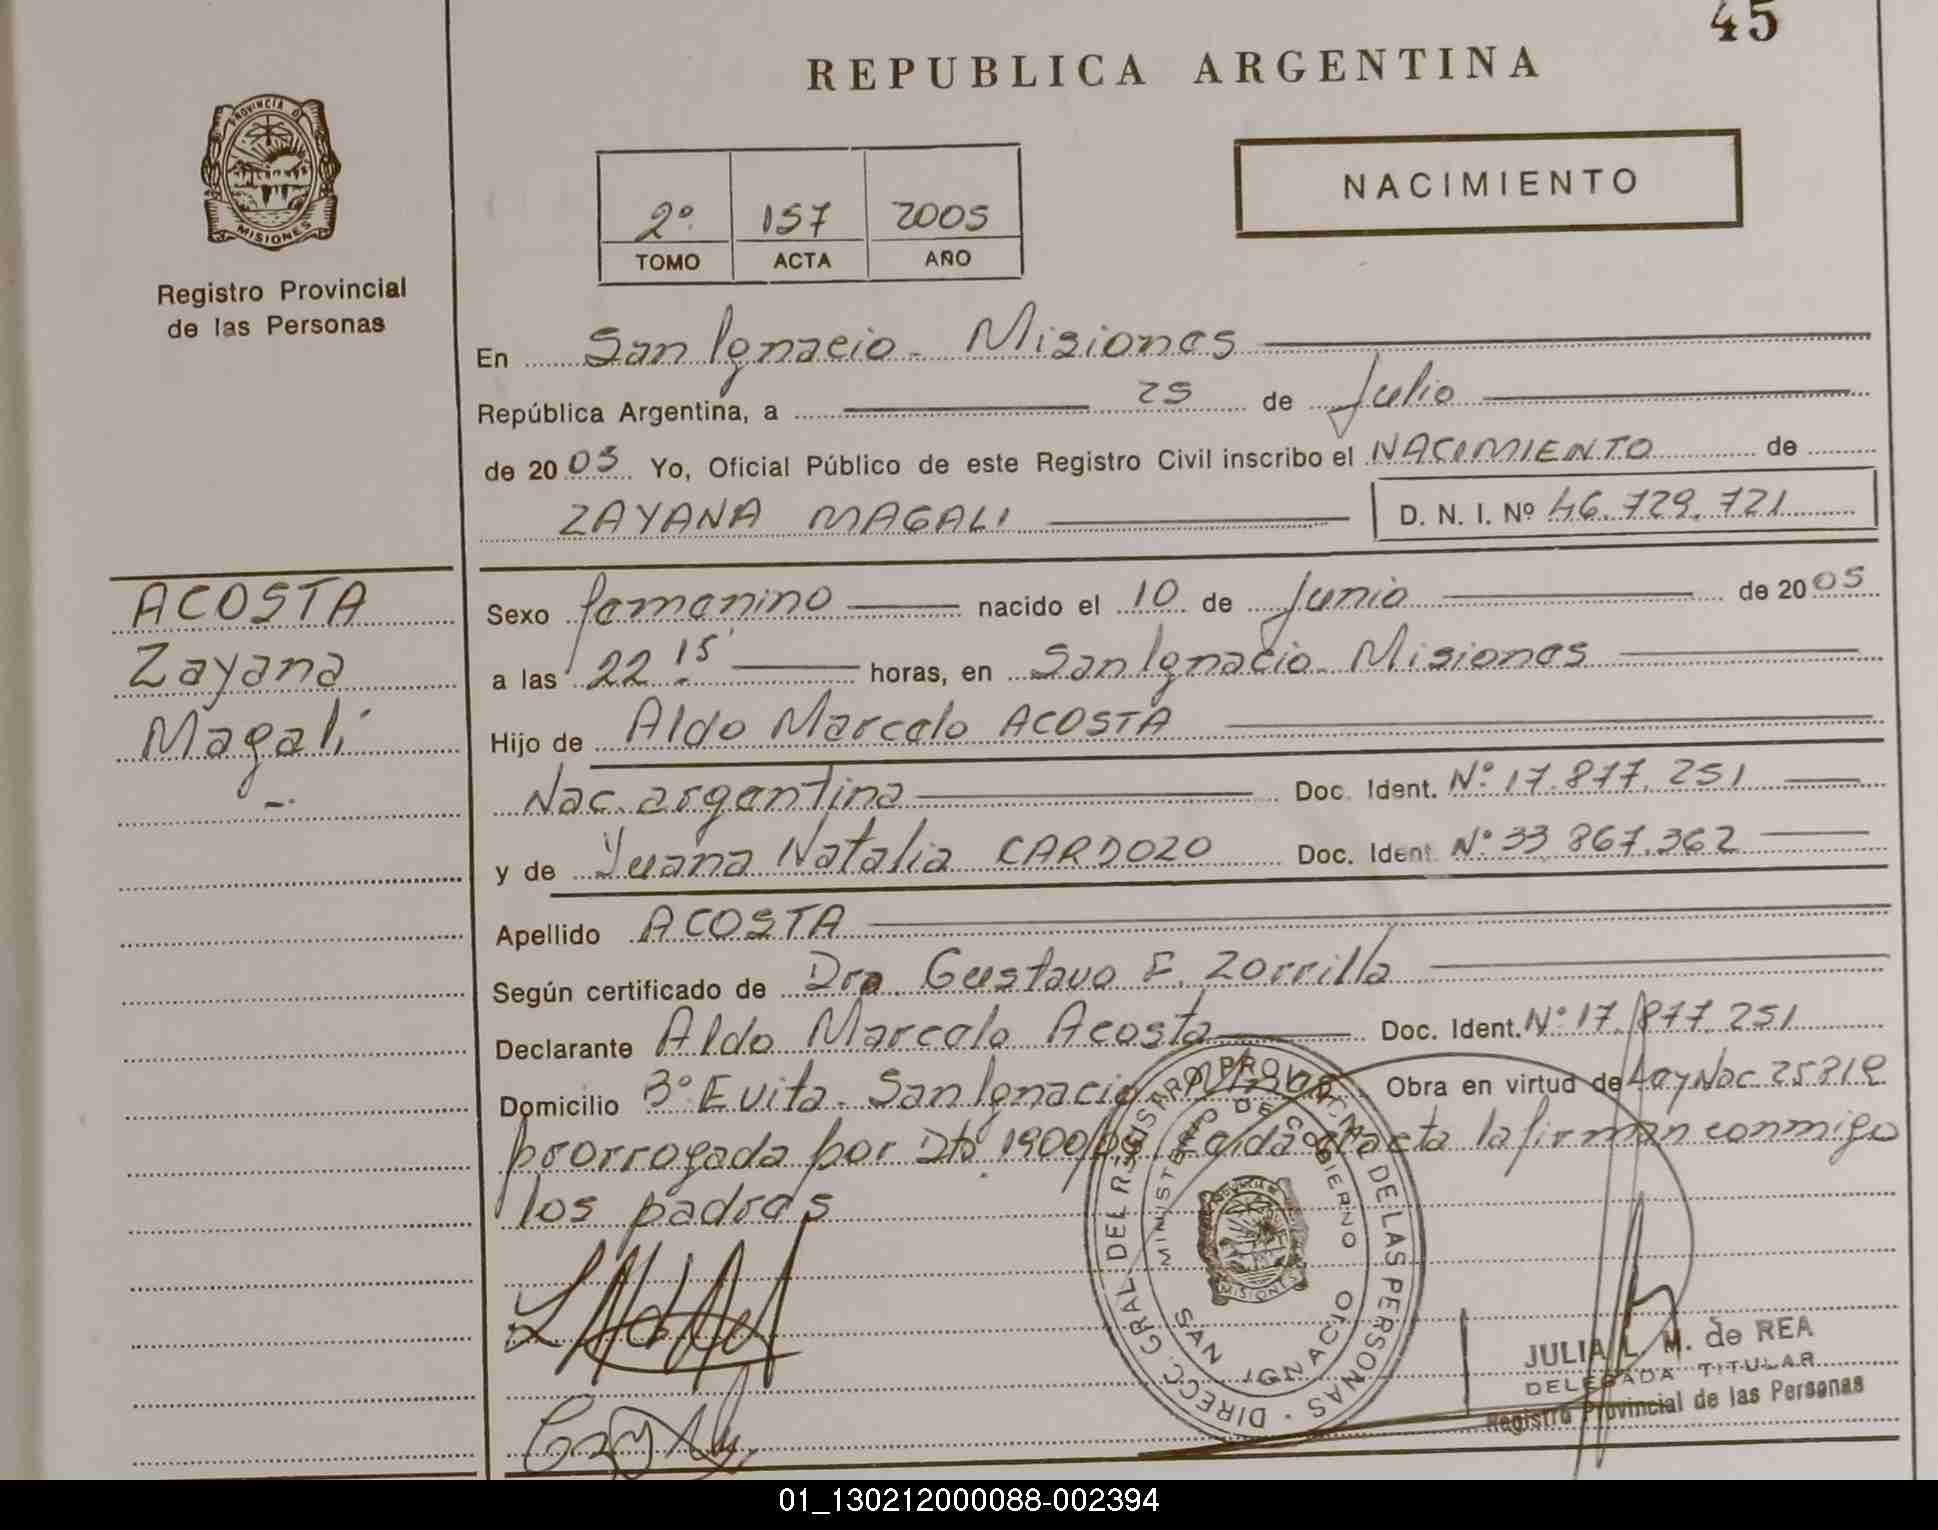 45
REPUBLICA ARGENTINA
PROVINCIA D
MISIONES
Registro Provincial
de las Personas
NACIMIENTO
2º 157 2005
TOMO ACTA AÑO
En San Ignacio - Misiones
República Argentina, a 25 de Julio
de 2005 Yo, Oficial Público de este Registro Civil inscribo el NACIMIENTO de
ZAYANA MAGALI D. N. I. Nº 46.729.721
ACOSTA
Zayana
Magali
Sexo femenino nacido el 10 de Junio de 2005
a las 22.15 horas, en San Ignacio - Misiones
Hijo de Aldo Marcelo ACOSTA
Nac. argentina Doc. Ident. Nº 17.877.251
y de Juana Natalia CARDOZO Doc. Ident. Nº 33.867.362
Apellido ACOSTA
Según certificado de Dra. Gustavo F. Zorrilla
Declarante Aldo Marcelo Acosta Doc. Ident. Nº 17.877.251
Domicilio Bº Evita - San Ignacio Obra en virtud de Ley Nac.
prorrogada por Dto. 1900 acta la firman conmigo
los padres
DIRECC. GRAL DEL REGISTRO PROVINCIAL DE LAS PERSONAS
MINISTERIO DE GOBIERNO
MISIONES
SAN IGNACIO
JULIA L. M. de REA
DELEGADA TITULAR
Registro Provincial de las Personas
01_130212000088-002394